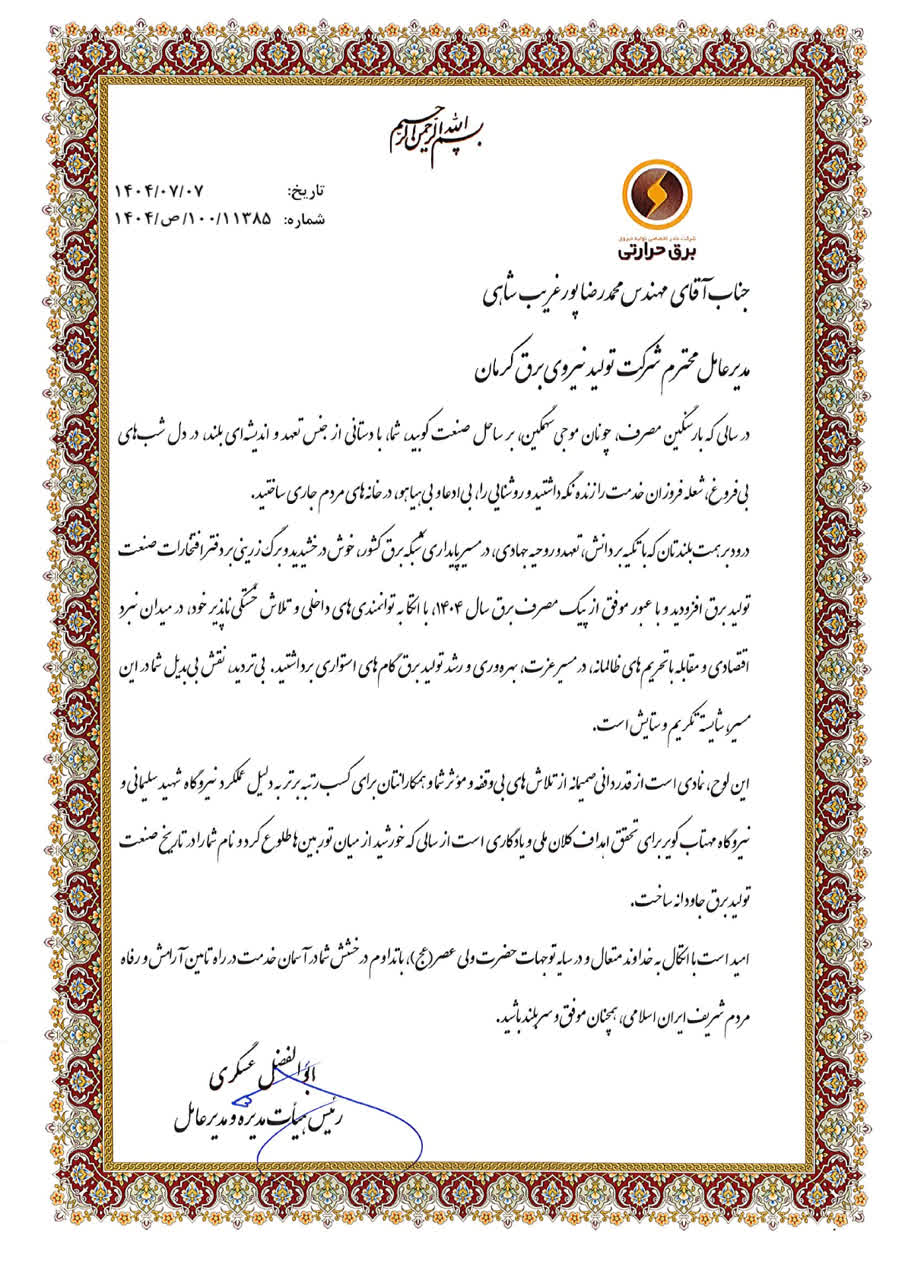 بسم الله الرحمن الرحیم
تاریخ: ۱۴۰۴/۰۷/۰۷
شماره: ۱۴۰۴/ص/۱۰۰/۱۱۳۸۵
شرکت مادر تخصصی تولید نیروی
برق حرارتی
جناب آقای مهندس محمدرضا پورغریب شاهی
مدیرعامل محترم شرکت تولید نیروی برق کرمان
در سالی که بار سنگین مصرف، چونان موجی سهمگین، بر ساحل صنعت کوبید، شما، با دستانی از جنس تعهد و اندیشه‌ای بلند، در دل شب‌های
بی‌فروغ، شعله فروزان خدمت را زنده نگه داشتید و روشنایی را، بی‌ادعا و بی‌هیاهو، در خانه‌های مردم جاری ساختید.
درود بر همت بلندتان که با تکیه بر دانش، تعهد و روحیه جهادی، در مسیر پایداری شبکه برق کشور، خوش درخشیدید و برگ زرینی بر دفتر افتخارات صنعت
تولید برق افزودید و با عبور موفق از پیک مصرف برق سال ۱۴۰۴، با اتکا به توانمندی‌های داخلی و تلاش خستگی ناپذیر خود، در میدان نبرد
اقتصادی و مقابله با تحریم‌های ظالمانه، در مسیر عزت، بهره‌وری و رشد تولید برق گام‌های استواری برداشتید. بی‌تردید، نقش بی‌بدیل شما در این
مسیر، شایسته تکریم و ستایش است.
این لوح، نمادی است از قدردانی صمیمانه از تلاش‌های بی‌وقفه و مؤثر شما و همکارانتان برای کسب رتبه برتر به دلیل عملکرد نیروگاه شهید سلیمانی و
نیروگاه مهتاب کویر برای تحقق اهداف کلان ملی و یادگاری است از سالی که خورشید از میان توربین‌ها طلوع کرد و نام شما را در تاریخ صنعت
تولید برق جاودانه ساخت.
امید است با اتکال به خداوند متعال و در سایه توجهات حضرت ولی عصر(عج)، با تداوم درخشش شما در آسمان خدمت در راه تامین آرامش و رفاه
مردم شریف ایران اسلامی، همچنان موفق و سربلند باشید.
ابوالفضل عسکری
رئیس هیأت مدیره و مدیرعامل